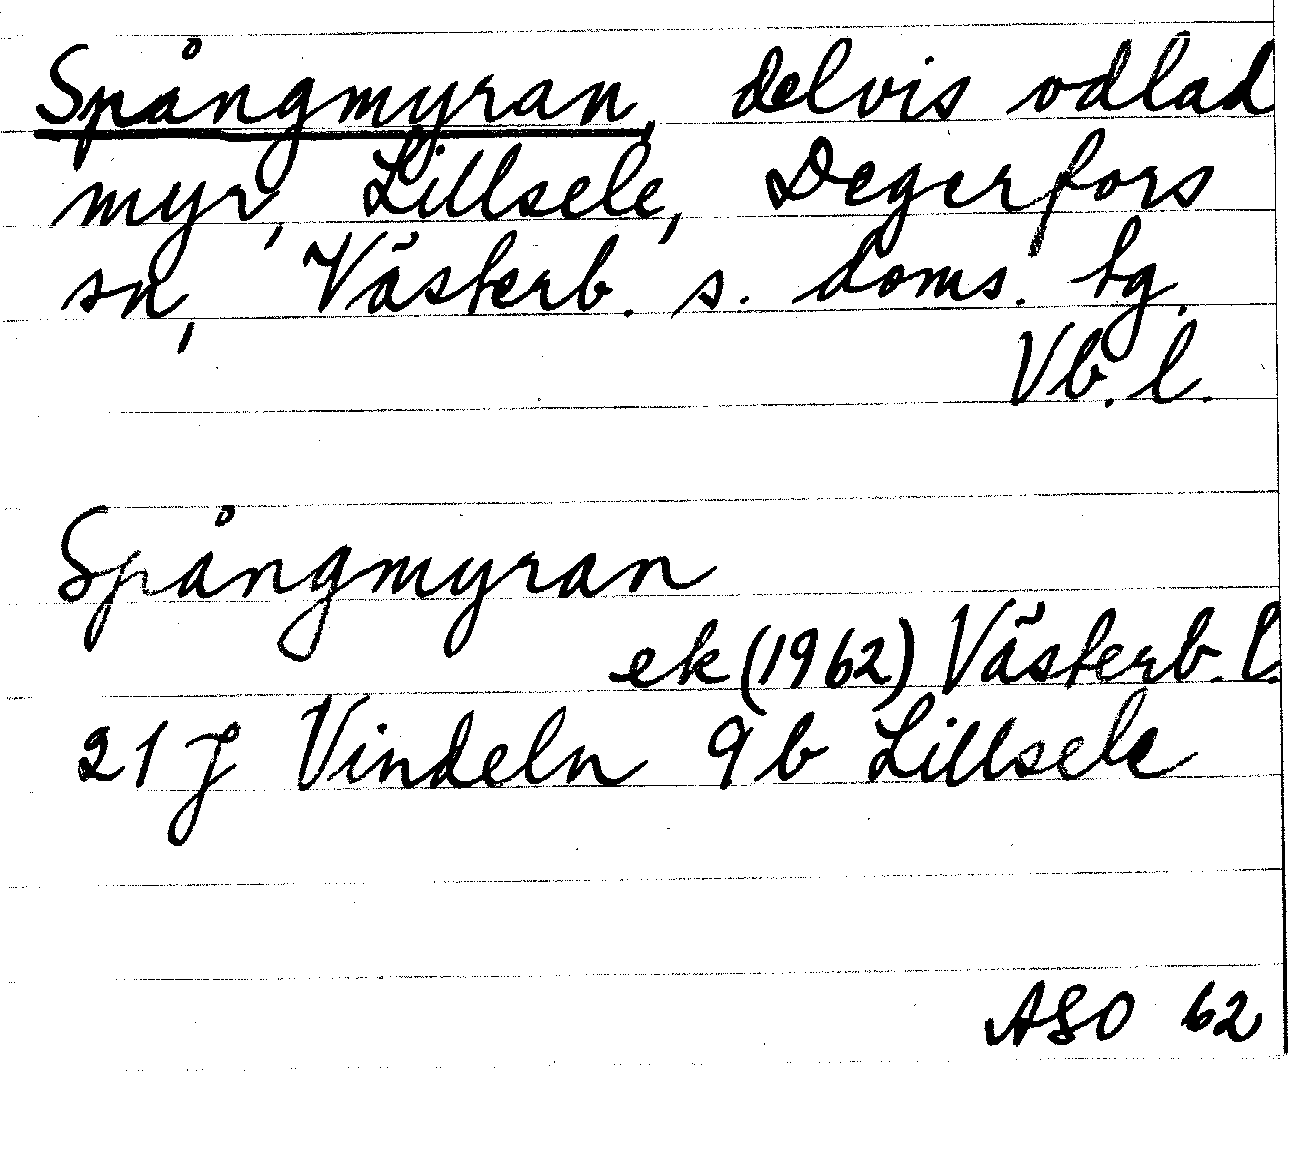 Spångmyran, delvis odlad
myr, Lillsele, Degerfors
sn, Västerb. s. doms. tg.
Vb. l.
Spångmyran
ek (1962) Västerb. l.
21 J Vindeln 9b Lillsele
ASO 62